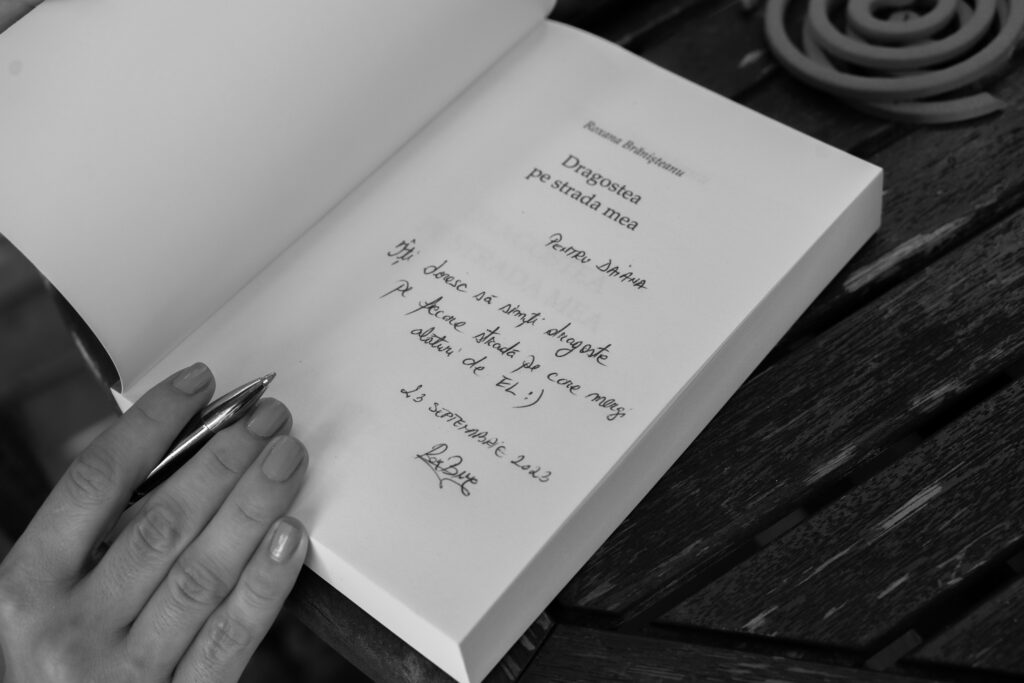 Roxana Brănișteanu
Dragostea
pe strada mea
PENTRU DAIANA
Îți doresc să simți dragoste
pe fiecare stradă pe care mergi
alături de EL :)
23 SEPTEMBRIE 2023